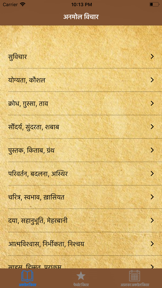 Carrier
10:13 PM
अनमोल विचार
सुविचार
योग्यता, कौशल
क्रोध, गुस्सा, ताव
सौंदर्य, सुंदरता, शबाब
पुस्तक, किताब, ग्रंथ
परिवर्तन, बदलना, अस्थिर
चरित्र, स्वभाव, ख़ासियत
दया, सहानुभूति, मेहरबानी
आत्मविश्वास, निर्भीकता, निश्चय